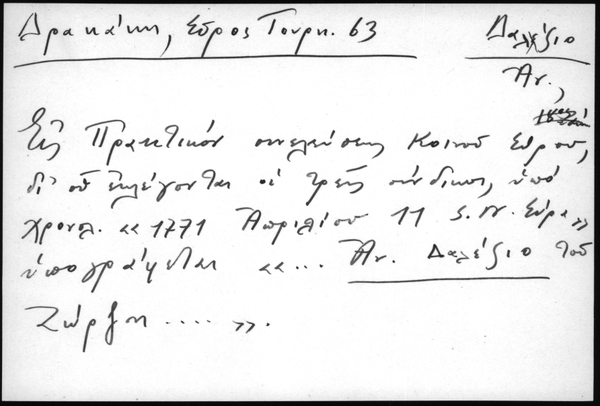 Δρακάκη, Σῦρος Τουρκ. 63
Δαλέζιο
Ἀν.,
Εἰς Πρακτικόν συνελεύσεως Κοινοῦ Σύρου,
δι' οὗ ἐκλέγονται οἱ τρεῖς σύνδικοι, ὑπό
χρονολ. «1771 Ἀπριλίου 11 S.N. Σύρα»
ὑπογράφεται «... Ἀν. Δαλέζιο τοῦ
Ζώρζη .... ».